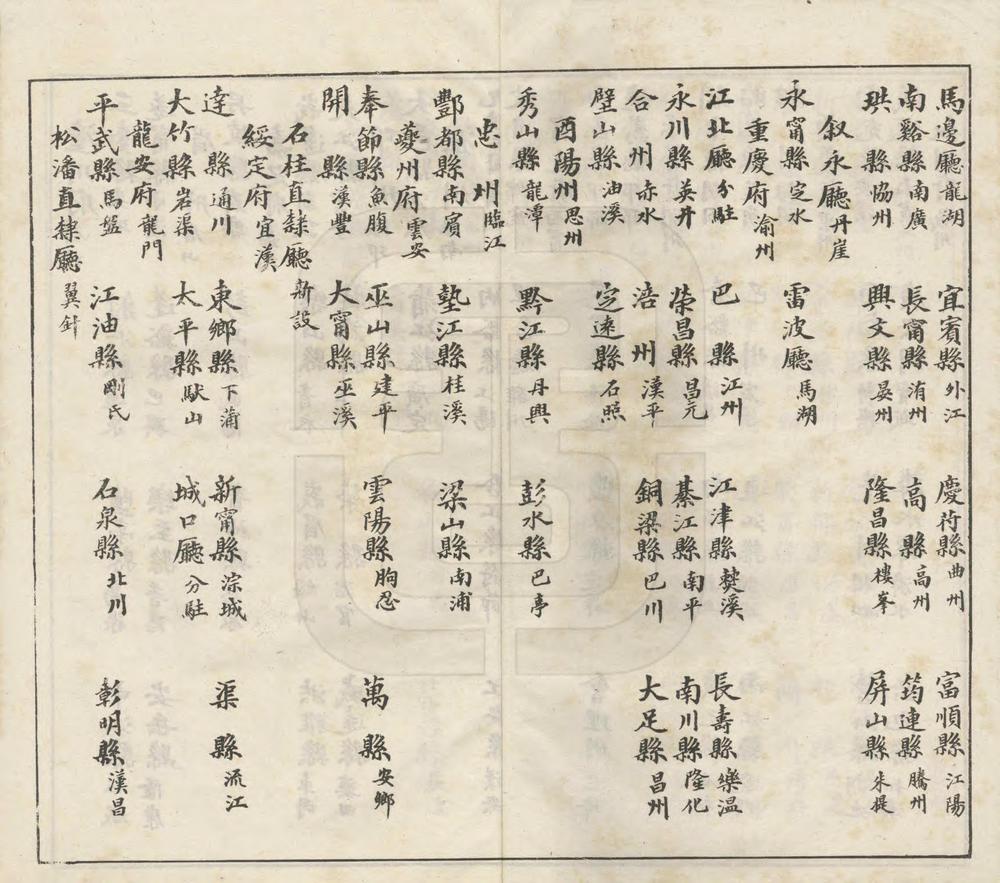 馬邊廳龍湖 宜賓縣外江 慶符縣曲州 富順縣江陽
南谿縣南廣 長甯縣淯州 高縣高州 筠連縣騰州
珙縣協州 興文縣晏州 隆昌縣樓峯 屏山縣朱提
叙永廳丹崖
永甯縣定水 雷波廳馬湖
重慶府渝州
江北廳分駐 巴縣江州 江津縣僰溪 長壽縣樂温
永川縣英井 荣昌縣昌元 綦江縣南平 南川縣隆化
合州赤水 涪州漢平 銅梁縣巴川 大足縣昌州
壁山縣油溪 定遠縣石照
酉陽州思州
秀山縣龍潭 黔江縣丹興 彭水縣巴亭
忠州臨江
酆都縣南賓 墊江縣桂溪 梁山縣南浦
夔州府雲安
奉節縣魚腹 巫山縣建平 雲陽縣朐忍 萬縣安鄉
開縣漢豐 大甯縣巫溪
石柱直隸廳新設
綏定府宜漢
達縣通川 東鄉縣下蒲 新甯縣淙城 渠縣流江
大竹縣岩渠 太平縣馱山 城口廳分駐
龍安府龍門
平武縣馬盤 江油縣剛氏 石泉縣北川 彰明縣漢昌
松潘直隸廳翼針